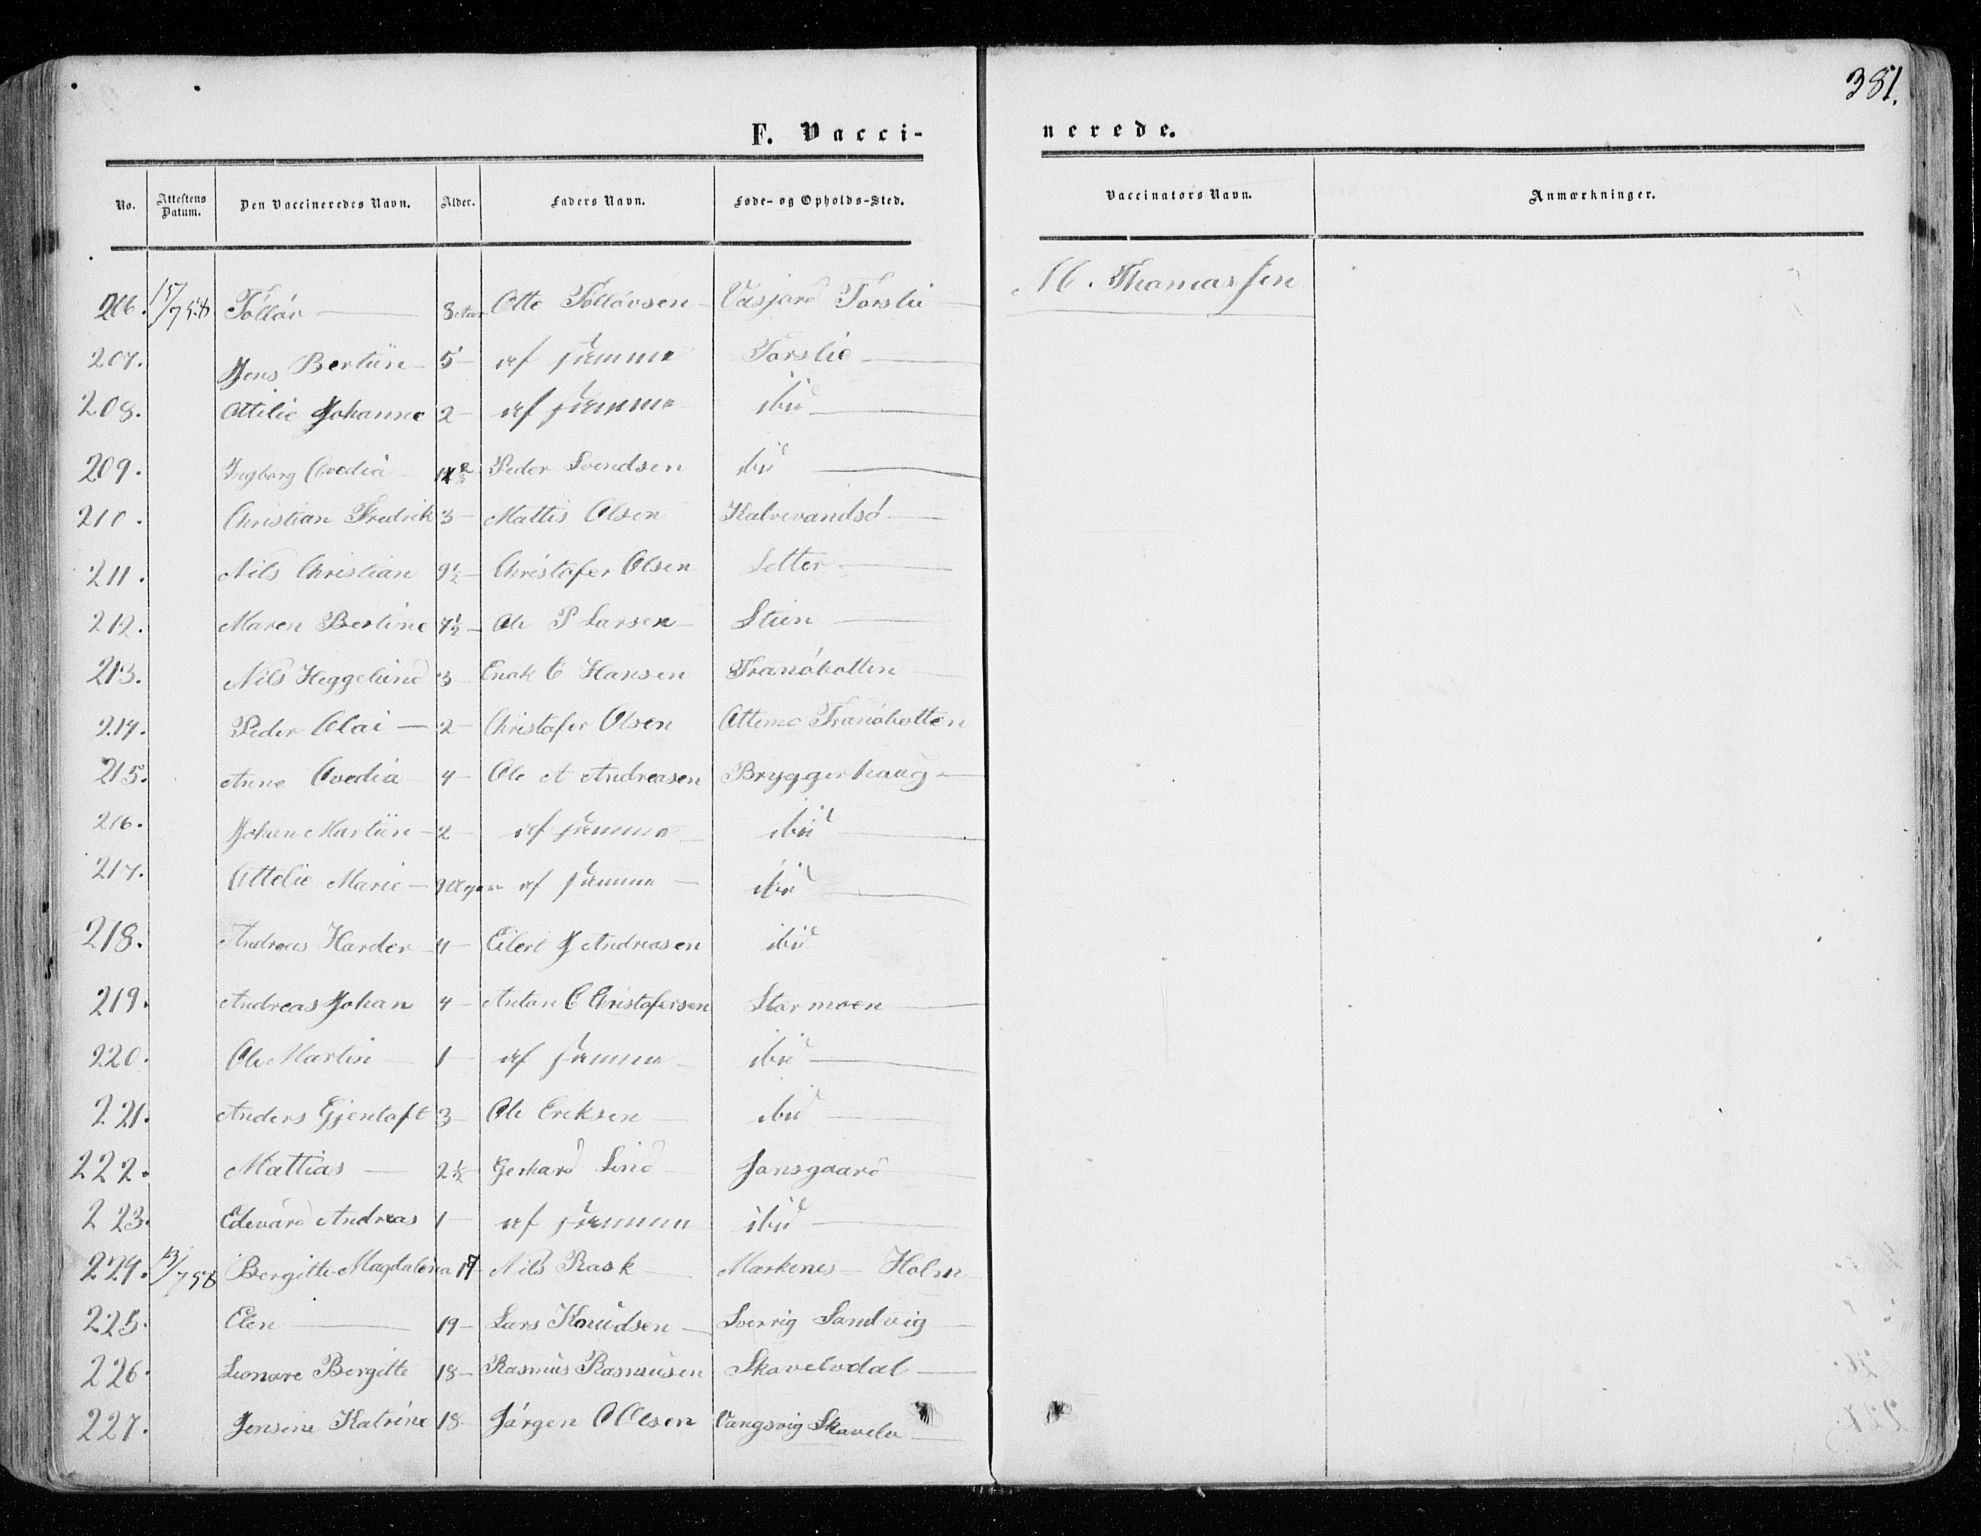 381.
F. Vaccinerede.
No. Attestens Datum. Den Vaccineredes Navn. Alder. Faders Navn. Føde- og Opholds-Sted. Vaccinators Navn. Anmærkninger.
206. 15/7 58 Tølløv 8 Aar Otto Tølløvsen Torslie M. Thomassen
207. Jens Bertün 5 af samme Torslie
208. Ottilie Johanne 2 af samme ibid
209. Ingborg Ovedia Peder Svendsen ibid
210. Christian Fredrik 3 Mattis Olsen Kalvevandsö
211. Nils Christian 9½ Christofer Olsen Setter
212. Maren Bertine 7½ Ole P Larsen Stün
213. Nils Heggelund 3 Enok C Hansen Tranöbotten
214. Peder Olai 2 Christofer Olsen Tranöbotten
215. Anne Ovedia 4 Ole A Andreasen Bryggerhaug
216. Johan Martün 2 af samme ibid
217. Ottelie Marie 9 af samme ibid
218. Andreas Harder 4 Eilert J Andreasen ibid
219. Andreas Johan 4 Anton C Christofersen Stormoen
220. Ole Martin 1 af samme ibid
221. Anders Gjentoft 3 Ole Eriksen ibid
222. Mattias 2½ Gerhard Lind Jonsgaard
223. Edevard Andreas 1 af samme ibid
224. 13/7 58 Bergitte Magdalena 17 Nils Rask Markenes Holm
225. Elen 19 Lars Knudsen Sandvig
226. Leonore Bergitte 18 Rasmus Rasmusen Skavelvdal
227. Jensine Katrine 18 Jörgen O Olsen Vangsvig Skavelv